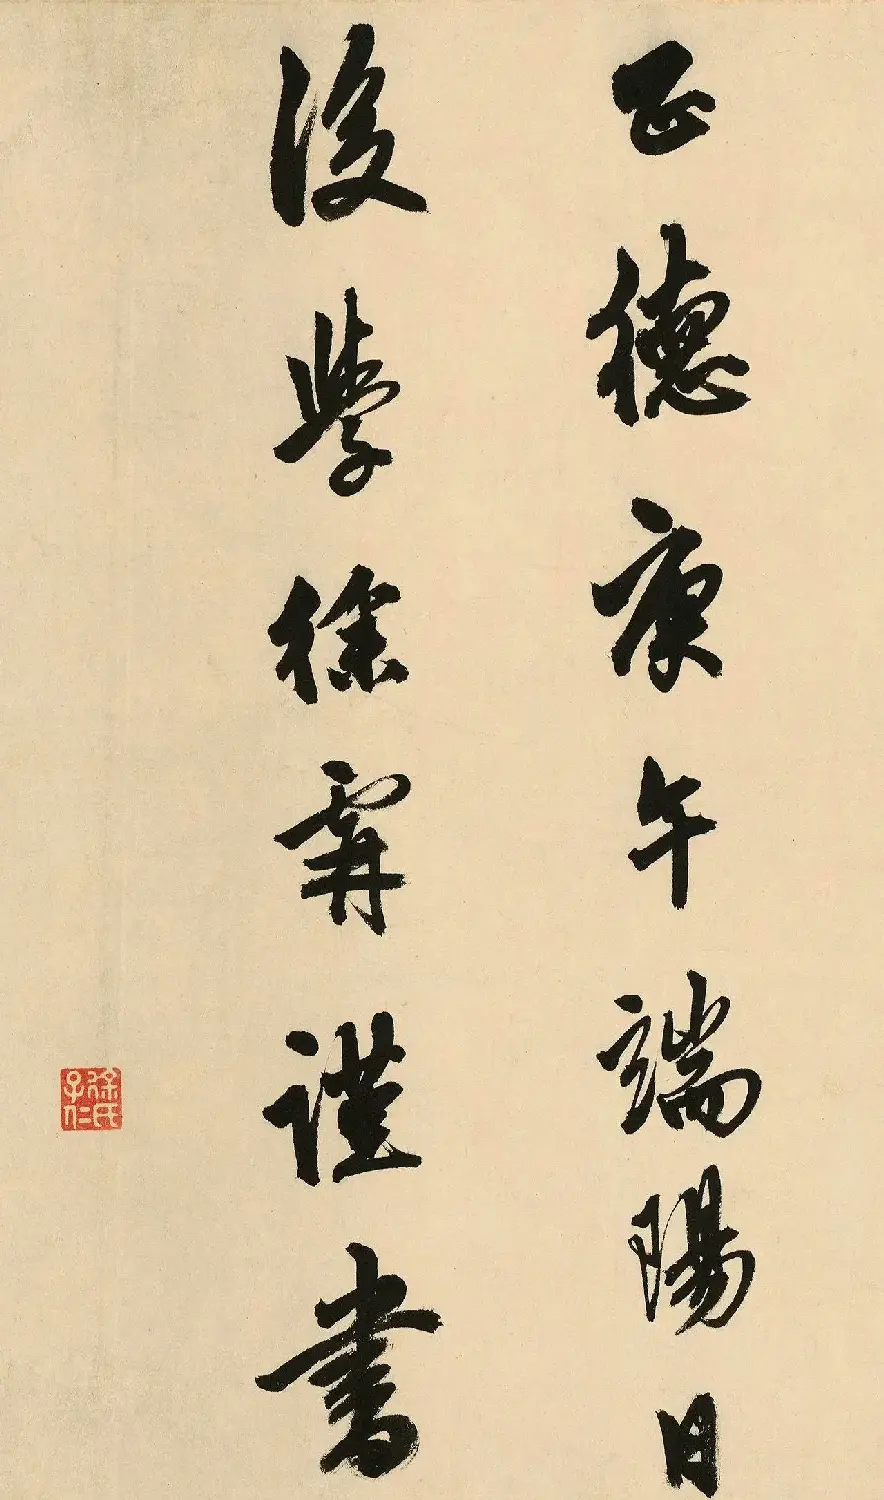 正德庚午端陽日
後學徐霖謹書
徐氏
子仁